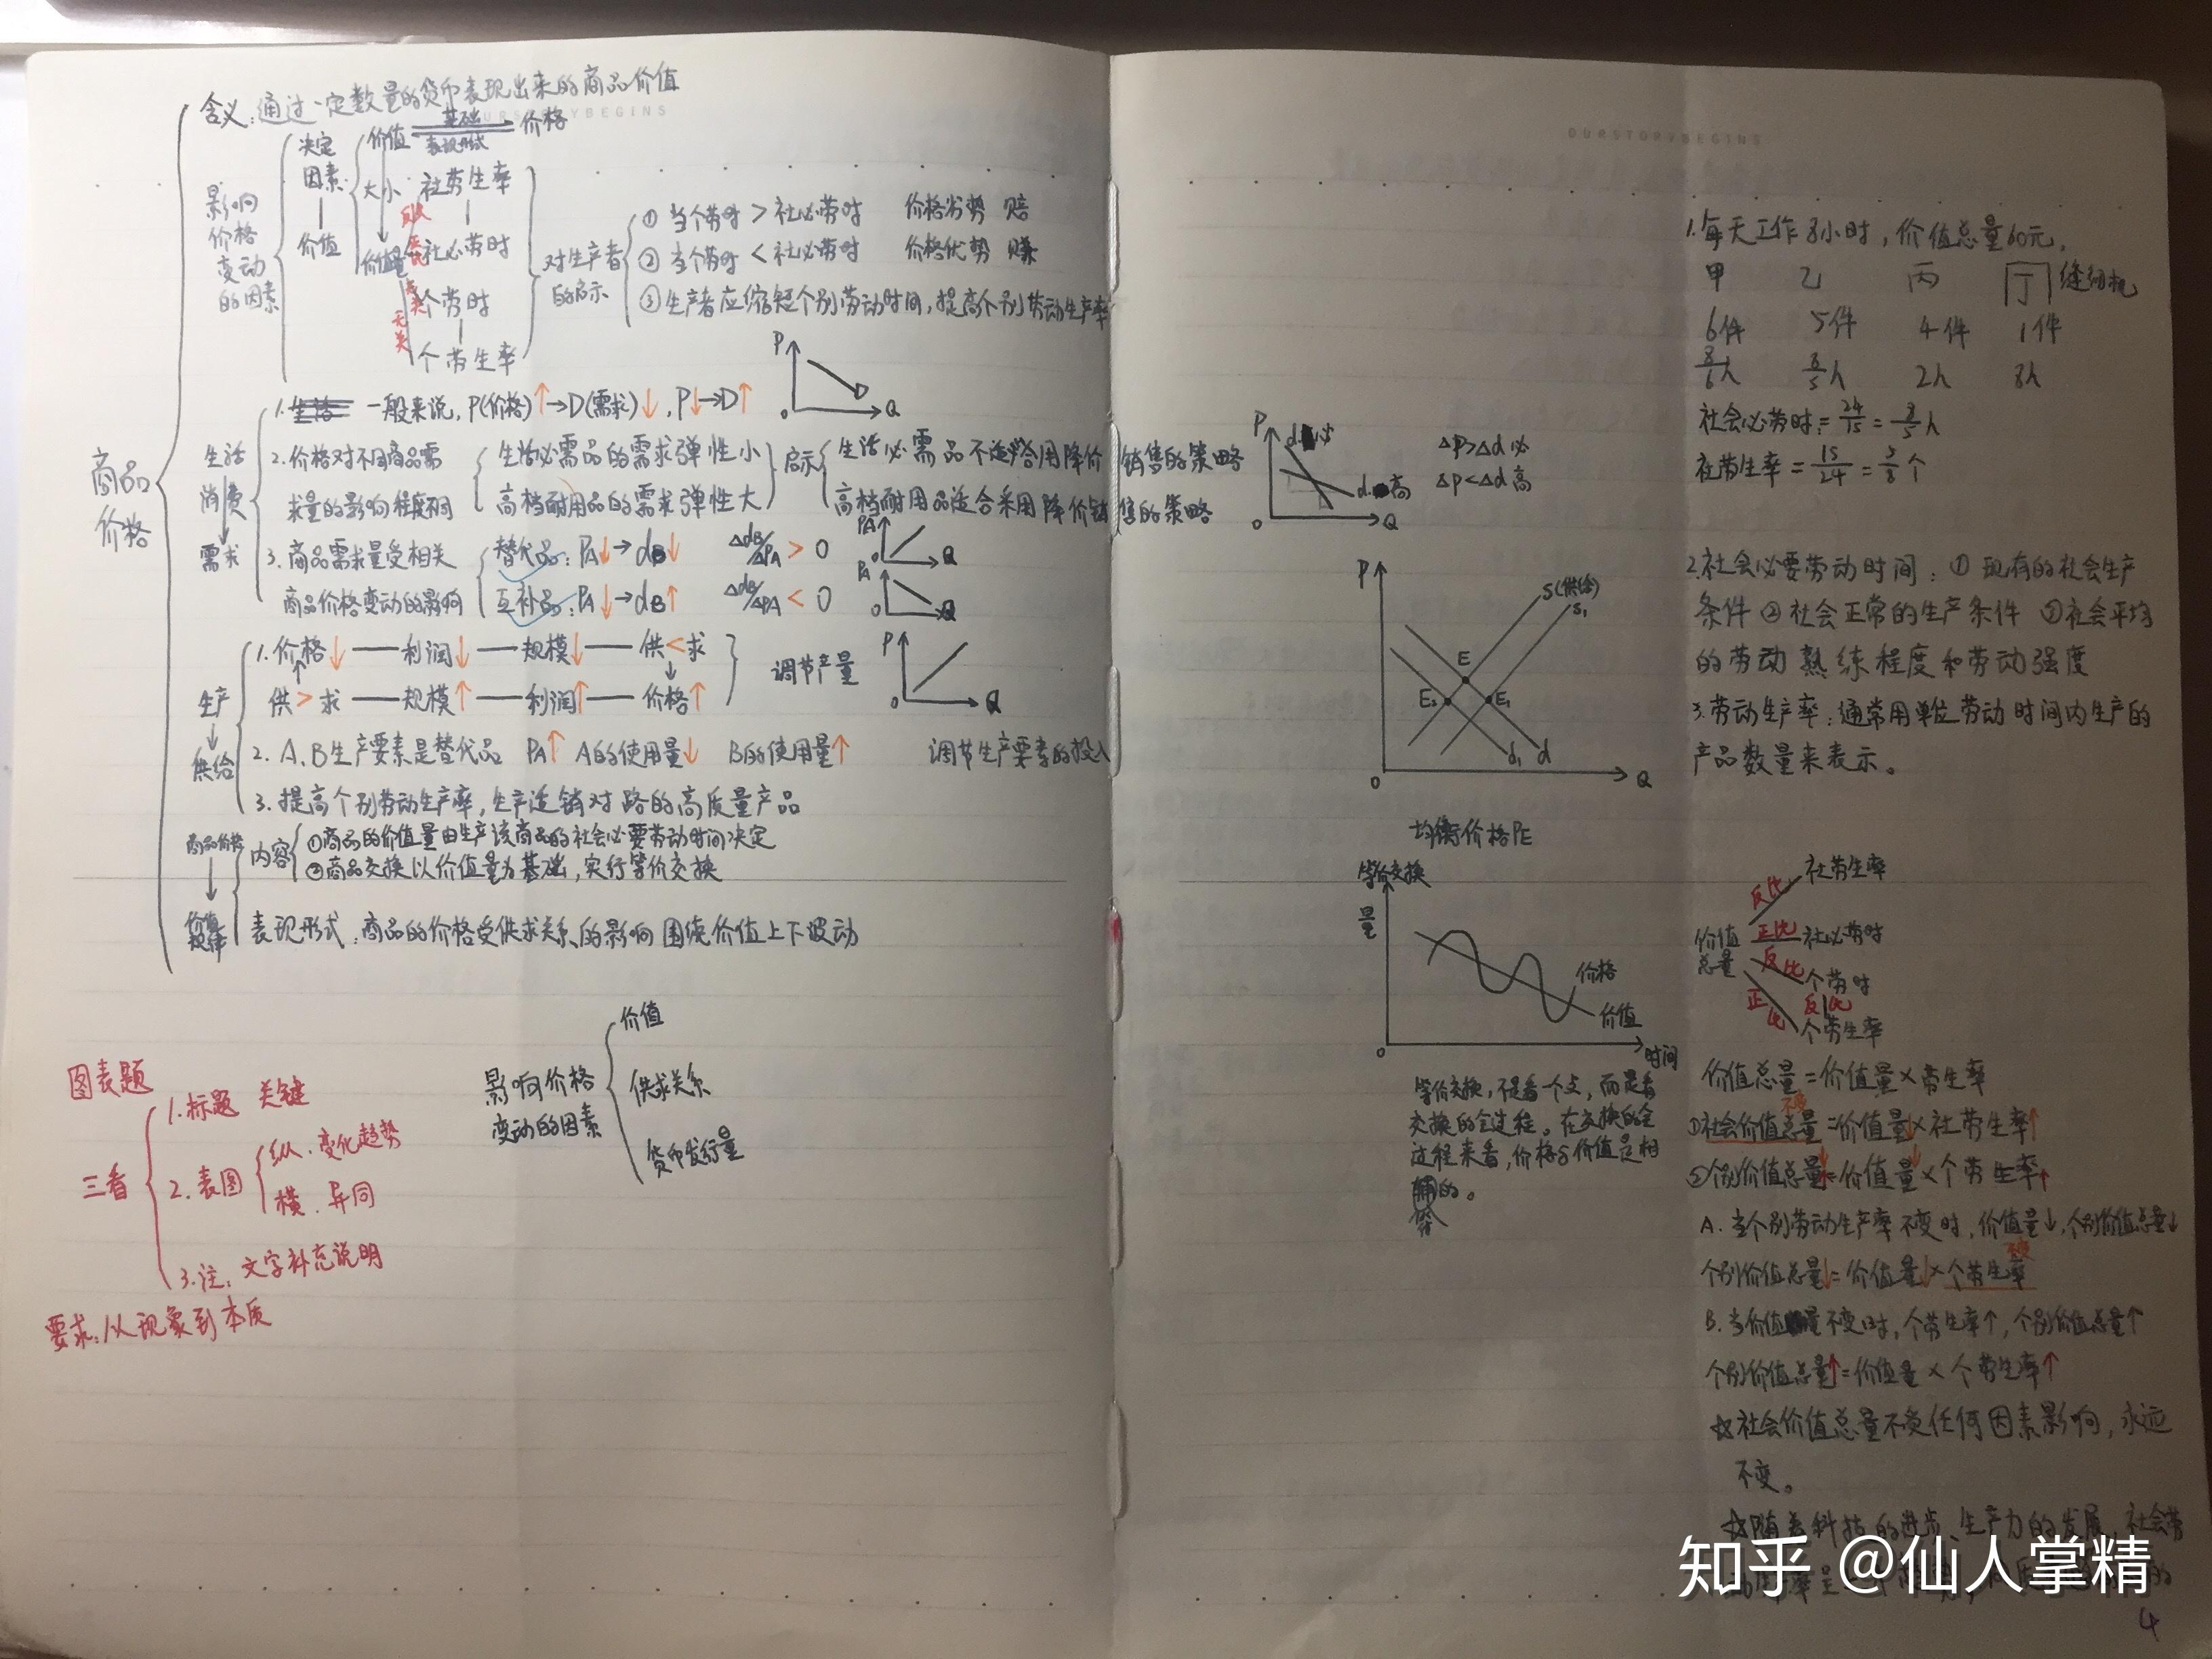 含义：通过一定数量的货币表现出来的商品价值
OURSTORYBEGINS
商品价格
影响价格变动的因素
决定因素
价值
价值 基础 价格
表现形式
大小
价值量
社劳生率
反比
正比
社必劳时
无关
个劳时
无关
个劳生率
对生产者的启示
① 当个劳时 > 社必劳时 价格劣势 赔
② 当个劳时 < 社必劳时 价格优势 赚
③ 生产者应缩短个别劳动时间，提高个别劳动生产率
生活消费
需求
1. 一般来说，P(价格)↑→D(需求)↓，P↓→D↑
P
D
0 Q
2. 价格对不同商品需求量的影响程度不同
生活必需品的需求弹性小
高档耐用品的需求弹性大
启示
生活必需品不适合用降价销售的策略
高档耐用品适合采用降价销售的策略
3. 商品需求量受相关商品价格变动的影响
替代品：PA↓→dB↓ ΔdB/ΔPA > 0
互补品：PA↓→dB↑ ΔdB/ΔPA < 0
PA
0 Q
PA
0 Q
生产
供给
1. 价格↓—利润↓—规模↓—供<求
供>求—规模↑—利润↑—价格↑
调节产量
P
0 Q
2. A、B生产要素是替代品 PA↑ A的使用量↓ B的使用量↑ 调节生产要素的投入
3. 提高个别劳动生产率，生产适销对路的高质量产品
商品价格
价值规律
内容
①商品的价值量由生产该商品的社会必要劳动时间决定
②商品交换以价值量为基础，实行等价交换
表现形式：商品的价格受供求关系的影响围绕价值上下波动
影响价格变动的因素
价值
供求关系
货币发行量
图表题
三看
1. 标题 关键
2. 表图
纵：变化趋势
横：异同
3. 注：文字补充说明
要求：从现象到本质
OURSTORYBEGINS
P
d必
d高
0 Q
ΔP>Δd必
ΔP<Δd高
P
S(供给)
S1
E
E2 E1
d1 d
0 Q
均衡价格PE
等价交换
量
价格
价值
0 时间
等价交换，不是看一个点，而是看
交换的全过程。在交换的全
过程来看，价格与价值是相
等的。
1. 每天工作8小时，价值总量60元。
甲 乙 丙 丁 缝纫机
6件 5件 4件 1件
8/6h 8/5h 2h 8h
社会必劳时=24/15=8/5h
社劳生率=15/24=5/8个
2. 社会必要劳动时间：①现有的社会生产
条件②社会正常的生产条件③社会平均
的劳动熟练程度和劳动强度
3. 劳动生产率：通常用单位劳动时间内生产的
产品数量来表示。
价值总量
反比 社劳生率
正比 社必劳时
反比 个劳时
反比
正比 个劳生率
价值总量=价值量×劳生率
不变
①社会价值总量=价值量↓×社劳生率↑
②个别价值总量↓=价值量↓×个劳生率↑
A. 当个别劳动生产率不变时，价值量↓，个别价值总量↓
不变
个别价值总量↓=价值量↓×个劳生率
B. 当价值量不变时，个劳生率↑，个别价值总量↑
个别价值总量↑=价值量×个劳生率↑
☆社会价值总量不受任何因素影响，永远
不变。
☆随着科技的进步、生产力的发展，社会劳
知乎 @仙人掌精
4